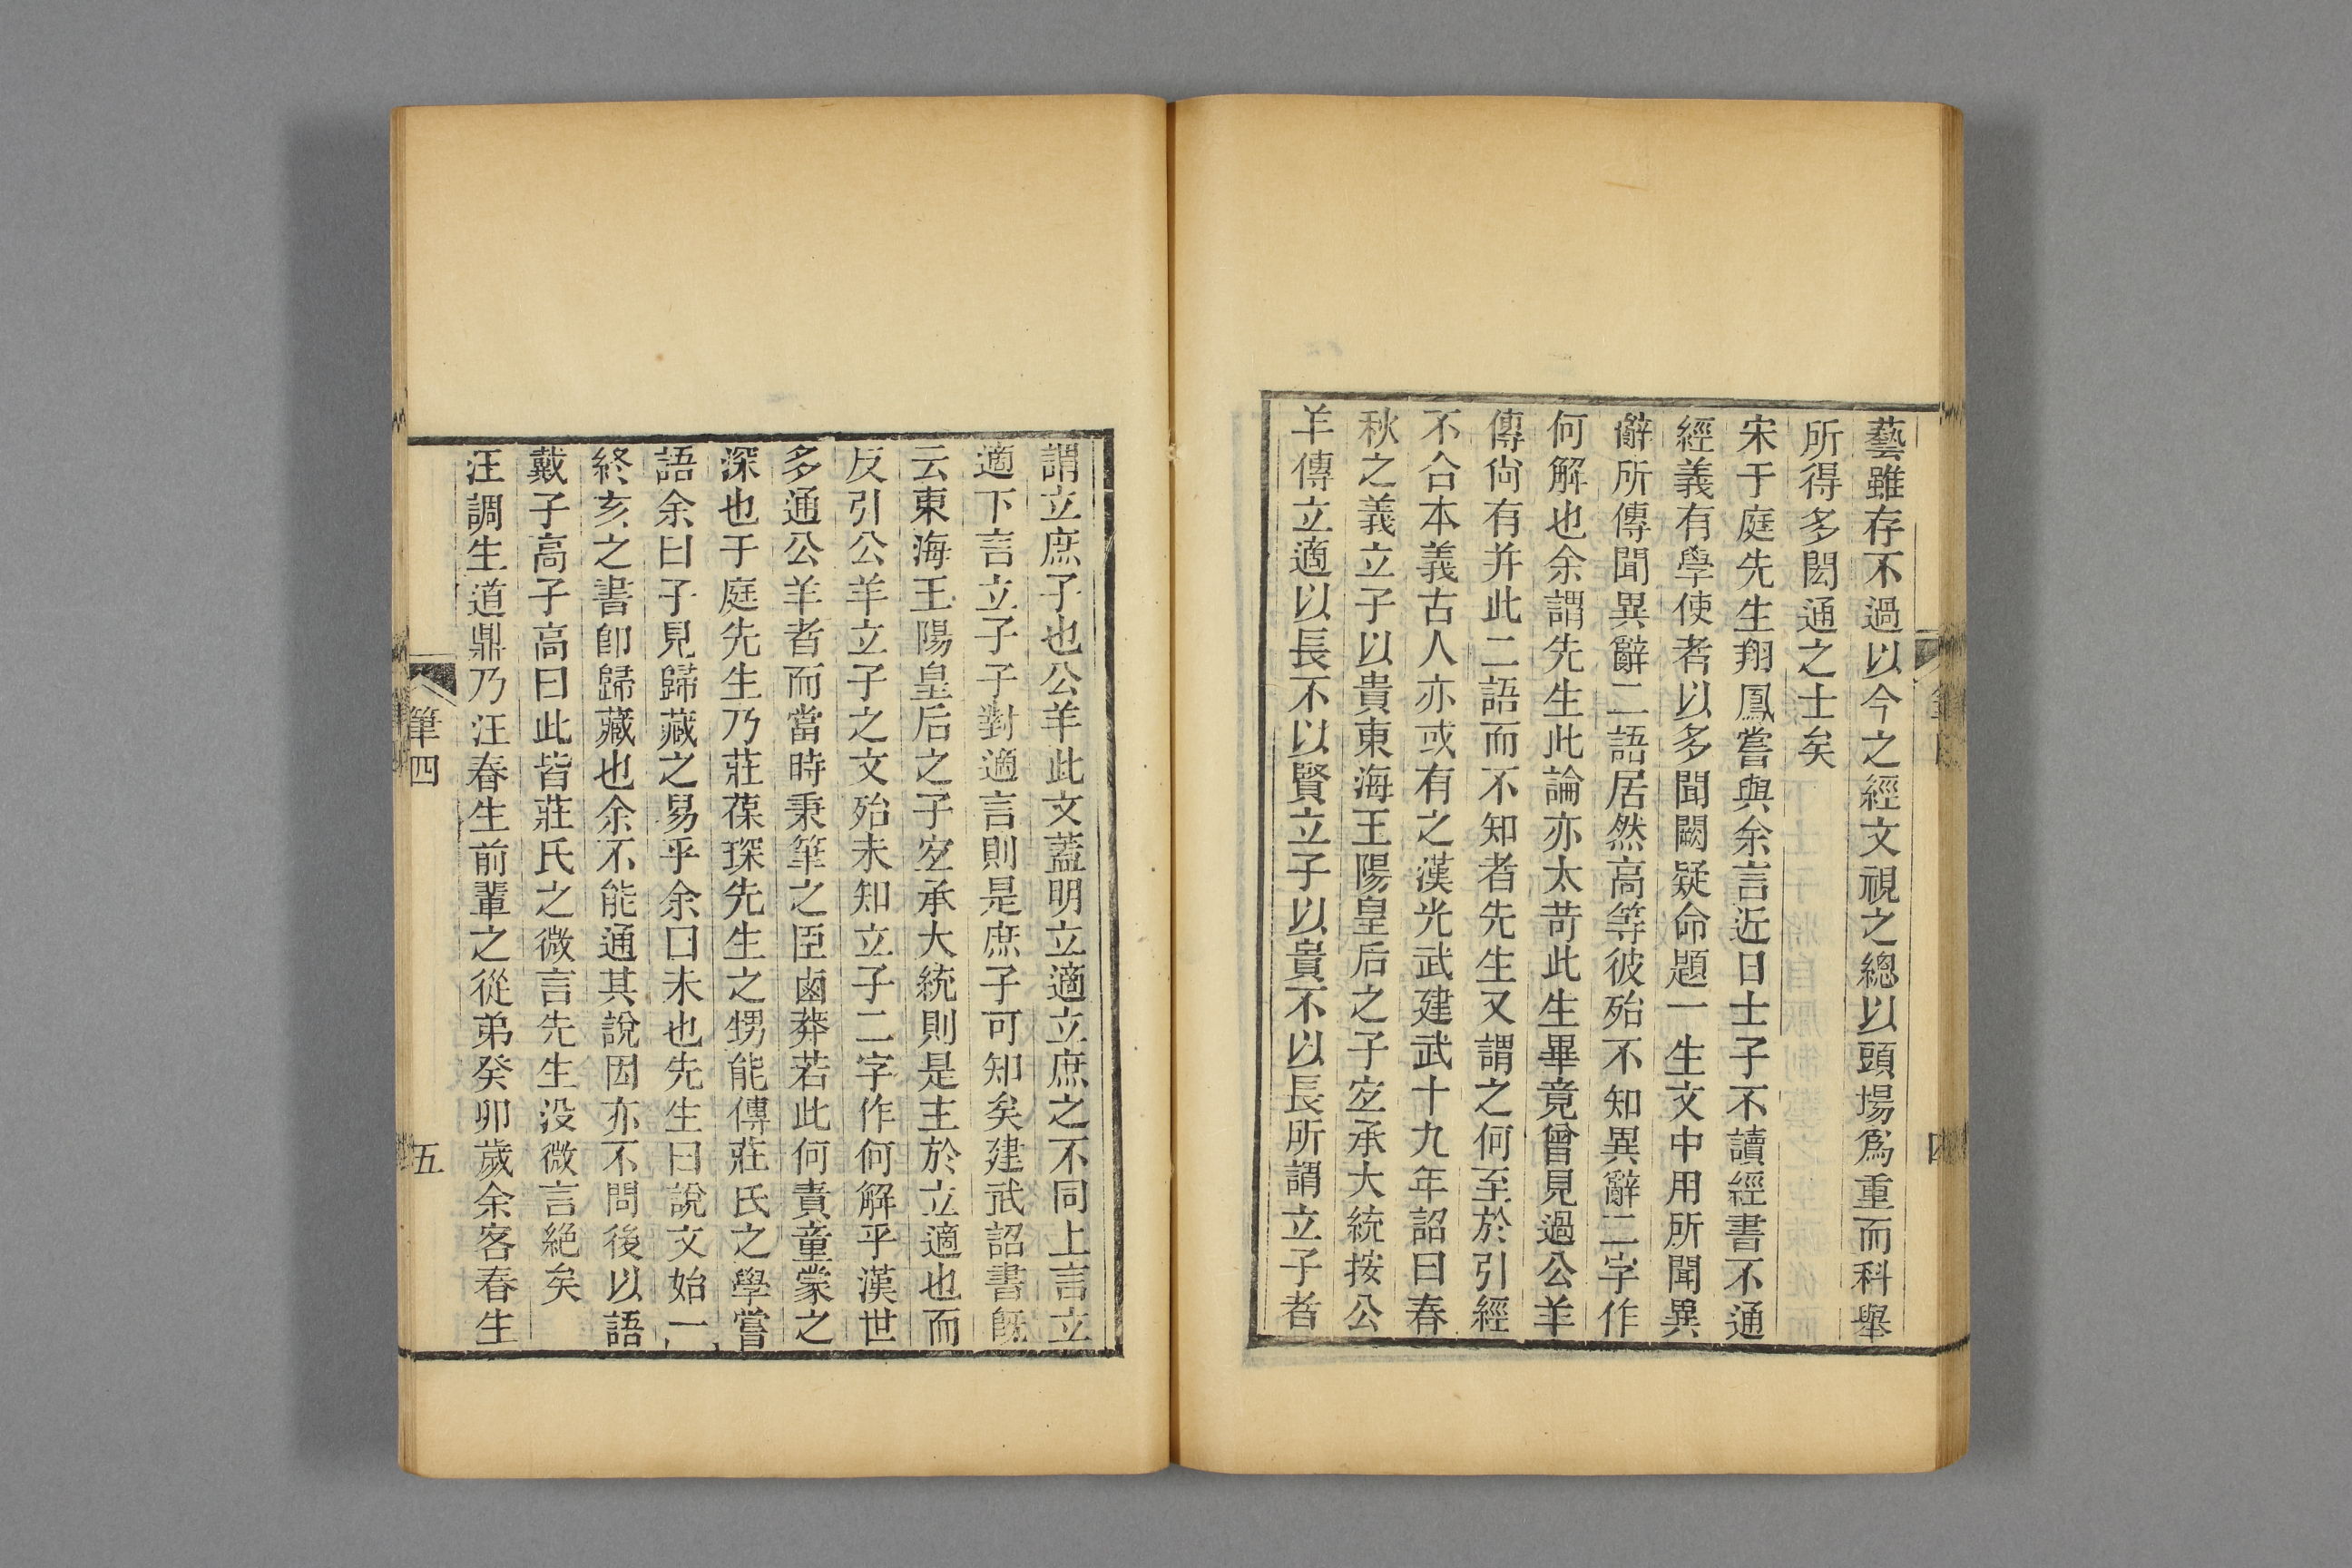 藝雖存不過以今之經文視之總以頭場爲重而科舉
所得多閎通之士矣
宋于庭先生翔鳳嘗與余言近日士子不讀經書不通
經義有學使者以多聞闕疑命題一生文中用所聞異
辭所傳聞異辭二語居然高等彼殆不知異辭二字作
何解也余謂先生此論亦太苛此生畢竟曾見過公羊
傳尙有并此二語而不知者先生又謂之何至於引經
不合本義古人亦或有之漢光武建武十九年詔曰春
秋之義立子以貴東海王陽皇后之子宐承大統按公
羊傳立適以長不以賢立子以貴不以長所謂立子者
謂立庶子也公羊此文蓋明立適立庶之不同上言立
適下言立子子對適言則是庶子可知矣建武詔書旣
云東海王陽皇后之子宐承大統則是主於立適也而
反引公羊立子之文殆未知立子二字作何解乎漢世
多通公羊者而當時秉筆之臣鹵莽若此何責童蒙之
深也于庭先生乃莊葆琛先生之甥能傳莊氏之學嘗
語余曰子見歸藏之易乎余曰未也先生曰說文始一
終亥之書卽歸藏也余不能通其說因亦不問後以語
戴子高子高曰此皆莊氏之微言先生没微言絕矣
汪調生道鼎乃汪春生前輩之從弟癸卯歲余客春生
筆四
五